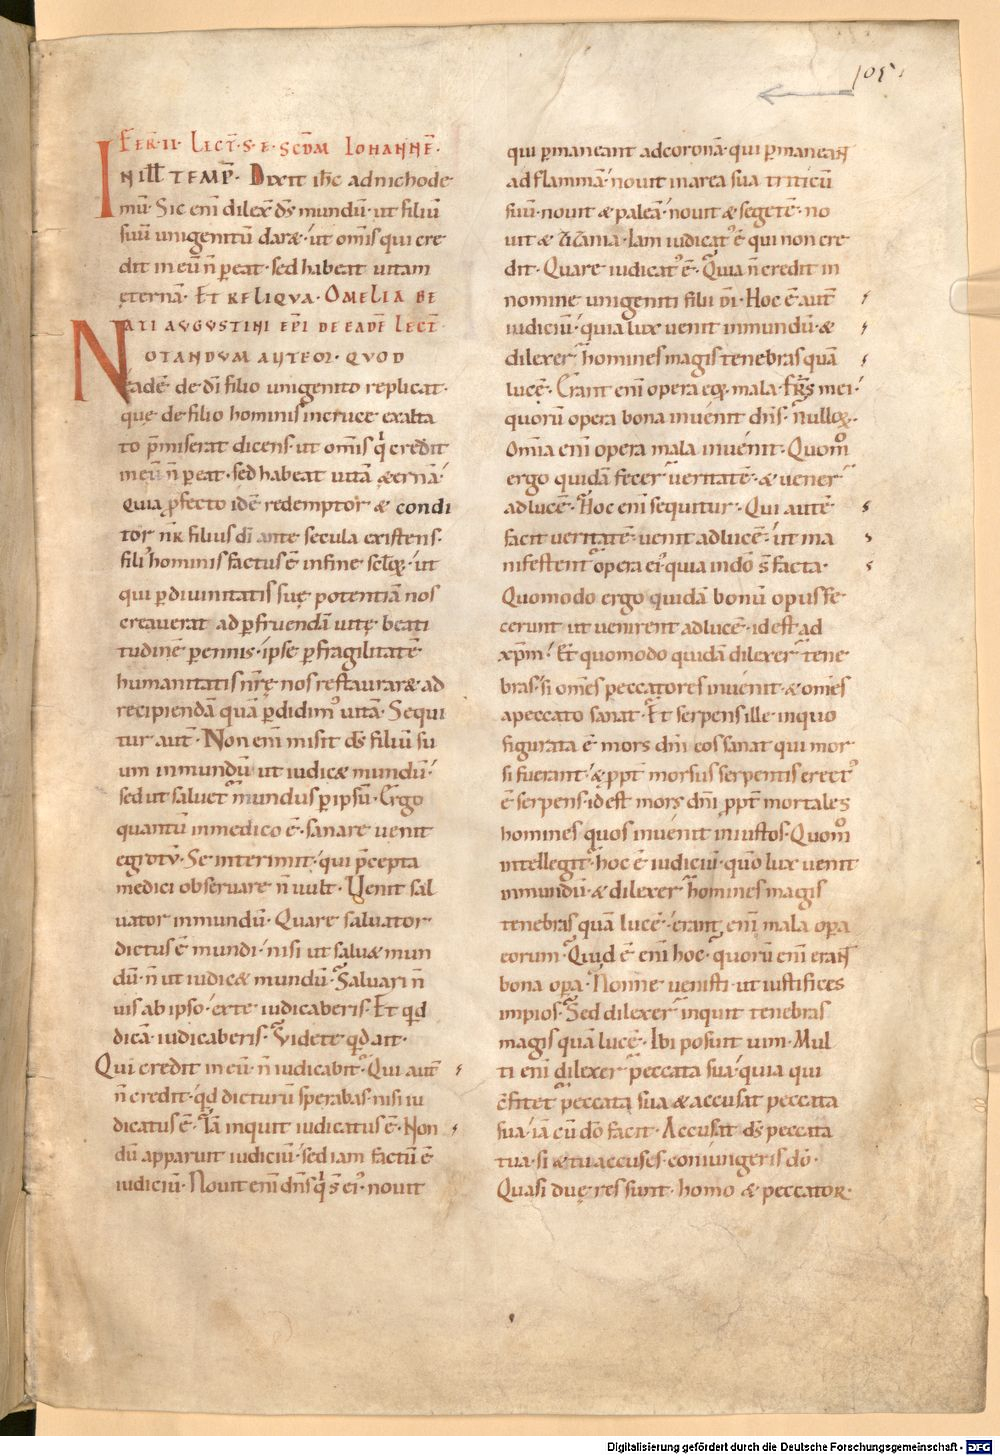 105
FER̄·II· LECT̄·S·E·SCD̄M IOHANNĒ·
IN ILL̄ TEMP̄R· Dixit ih̄c ad nichode
mū· Sic eni͂ dilex̄ d̄s mundū· ut filiū
suū unigenitū daræ· ut om̄is qui cre
dit in eū n̄ p̄eat· sed habeat uitam
ęternā· ET RELIQVA· OMELIA BE
ATI AUGUSTINI EP̄I DE EADĒ LECT̄
NOTANDVM AUTEOR· QVOD
eadē de d̄i filio unigenito replicat·
quę de filio hominis in cruce exalta
to p̄miserat dicens· ut om̄is q' credit
in eū n̄ p̄eat· sed habeat uitā æternā·
quia p̄fecto idē redemptor & condi
tor nr̄ filius d̄i ante secula existens·
fili' hominis factus ē in fine sclō℞· ut
qui p̄ diuinitatis suę potentiā nos
creauerat ad p̄fruendā uitę beati
tudinē p̄ennis· ipse p̄ fragilitatē
humanitatis nr̄ę nos restauraræ ad
recipiendā quā p̄didim' uitā· Sequi
tur aut̄· Non eni͂ misit d̄s filiū su
um in mundū ut iudicæ mundū·
sed ut saluet' mundus p̄ ipsū· Ergo
quantū in medico ē· sanare uenit
egrotū· Se interimit· qui p̄cepta
medici obseruare n̄ uult· Uenit sal
uator in mundū· Quare saluator
dictus ē mundi· nisi ut saluæ mun
dū· n̄ ut iudicæ mundū· Saluari n̄
uis ab ipso· ex te iudicaberis· Et q̄d
dicā· iudicaberis· Videte q̄d ait·
Qui credit in eū· n̄ iudicabit'· Qui aut̄
n̄ credit· q̄d dicturū sperabas· nisi iu
dicatus ē· Iā inquit iudicatus ē· Non
dū apparuit iudiciū· sed iam factū ē
iudiciū· Nouit eni͂ dn̄s q' s̄ ei'· nouit
qui p̄maneant ad coronā· qui p̄maneant
ad flammā· nouit in area sua triticū
suū· nouit & paleā· nouit & segetē· no
uit & zizania· Iam iudicat' ē qui non cre
dit· Quare iudicat' ē· Quia n̄ credit in
nomine unigeniti filii d̄i· Hoc ē aut̄
iudiciū· quia lux uenit in mundū· &
dilexer̄ homines magis tenebras quā
lucē· Erant eni͂ opera eo℞ mala· fr̄s mei·
quorū opera bona inuenit dn̄s· nullo℞·
Omīa eni͂ opera mala inuenit· Quom̊
ergo quidā fecer̄ ueritatē· & uener̄
ad lucē· Hoc eni͂ sequitur· Qui autē
facit ueritatē· uenit ad lucē· ut ma
nifestent' opera ei' quia in do̅ s̄ facta·
Quomodo ergo quidā bonū opus fe
cerunt ut uenirent ad lucē· id est ad
xp̄m· Et quomodo quidā dilexer̄ tene
bras· si om̄es peccatores inuenit· & om̄es
a peccato sanat· Et serpens ille in quo
figurata ē mors dn̄i eos sanat qui mor
si fuerant· & p̄pt̄ morsus serpentis erect'
ē serpens· id est mors dn̄i p̄pt̄ mortales
homines quos inuenit iniustos· Quom̊
intellegit' hoc ē iudiciū· quō lux uenit
in mundū· & dilexer̄ homines magis
tenebras quā lucē· erant eni͂ mala op̄a
eorum· Quid ē eni͂ hoc· quorū eni͂ erant
bona op̄a· Nonne uenisti· ut iustifices
impios· Sed dilexer̄ inquit tenebras
magis quā lucē· Ibi posuit uim· Mul
ti eni͂ dilexer̄ peccata sua· quia qui
c̄fitet' peccata sua & accusat peccata
sua· iā cū do̅ facit· Accusat d̄s peccata
tua· si & tu accuses· coniungeris do̅·
Quasi duę res sunt· homo & peccator·
Digitalisierung gefördert durch die Deutsche Forschungsgemeinschaft - DFG